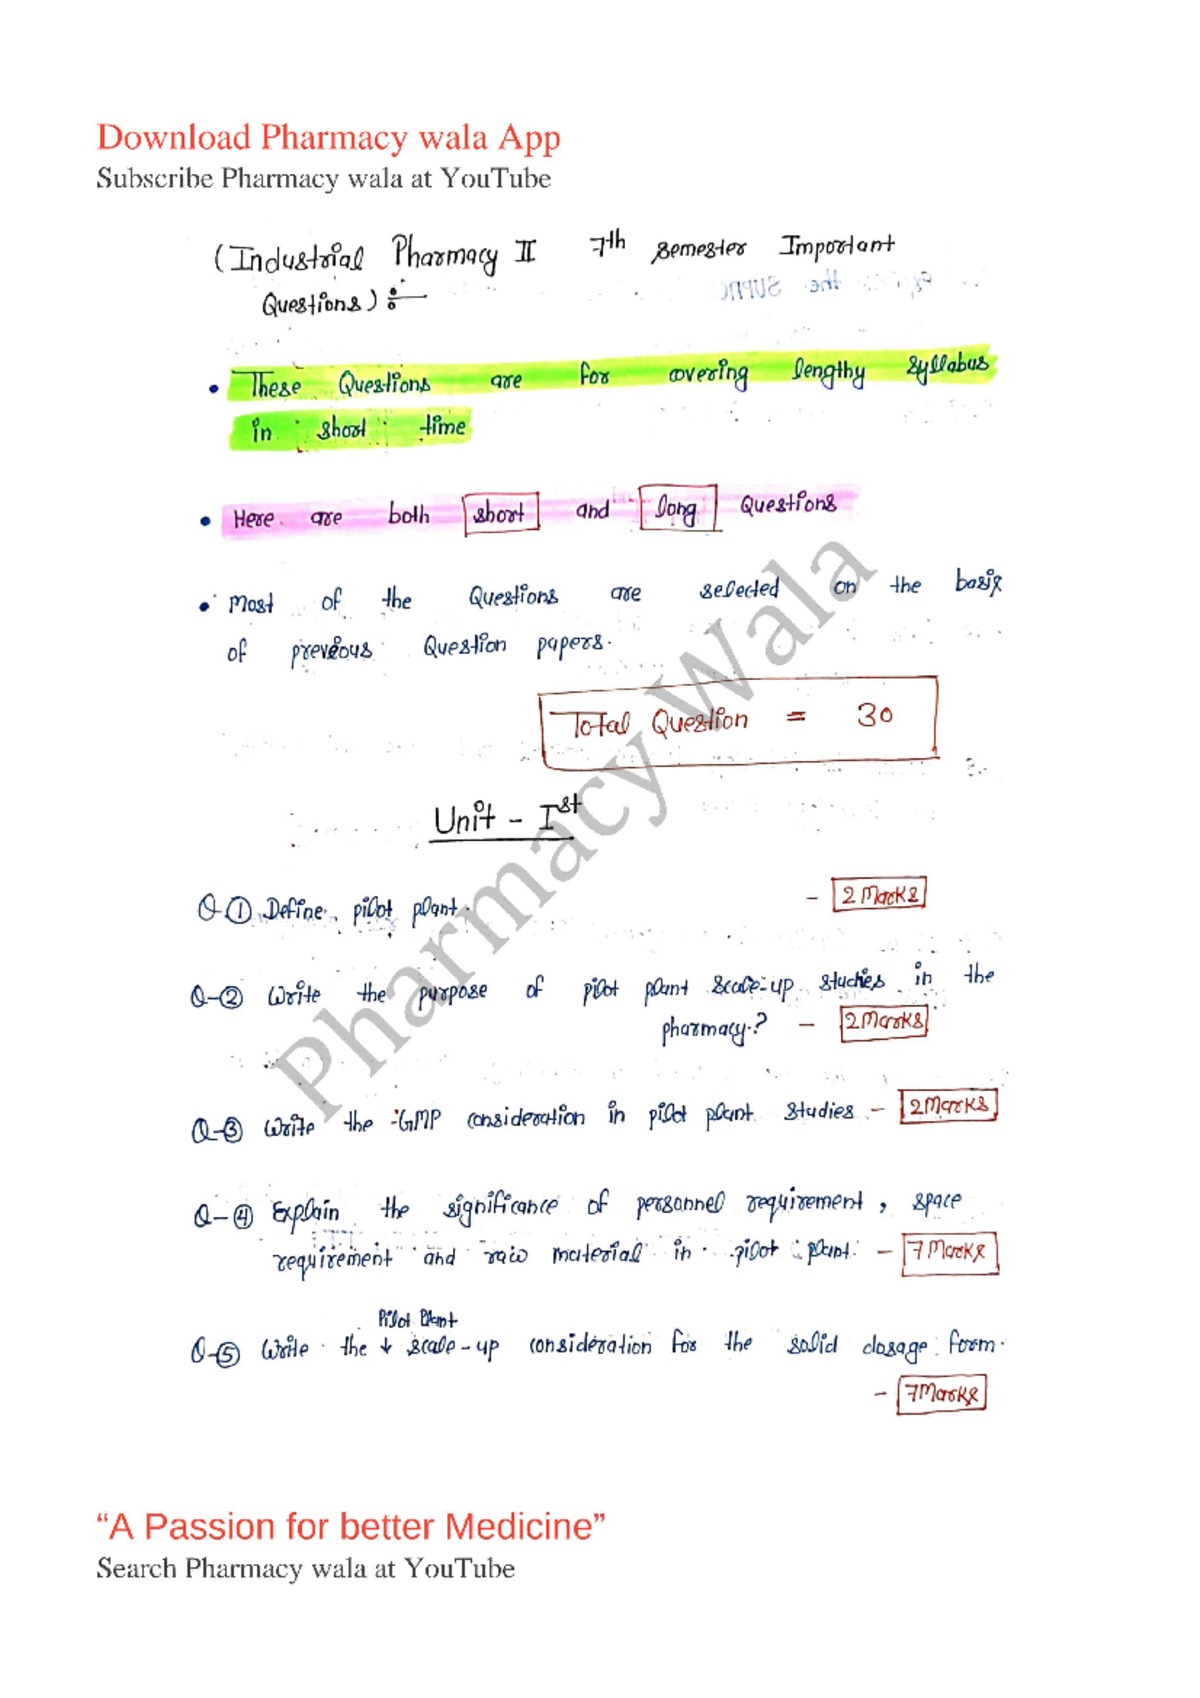 Download Pharmacy wala App
Subscribe Pharmacy wala at YouTube
(Industrial Pharmacy II 7th semester Important
Questions) :-
the SUPAC
• These Questions are for covering lengthy syllabus
in short time
• Here are both short and long Questions
• Most of the Questions are selected on the basis
of previous Question papers.
Total Question = 30
Unit - Ist
Q-① Define pilot plant. - 2 Marks
Q-② Write the purpose of pilot plant scale-up studies in the
pharmacy.? - 2 Marks
Q-③ Write the GMP consideration in pilot plant studies - 2 Marks
Q-④ Explain the significance of personnel requirement, space
requirement and raw material in pilot plant. - 7 Marks
Pilot Plant
Q-⑤ Write the ↓ scale-up consideration for the solid dosage form.
- 7 Marks
Pharmacy Wala
“A Passion for better Medicine”
Search Pharmacy wala at YouTube